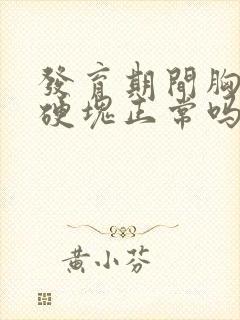 發育期間胸
硬塊正常吗
黄小芬